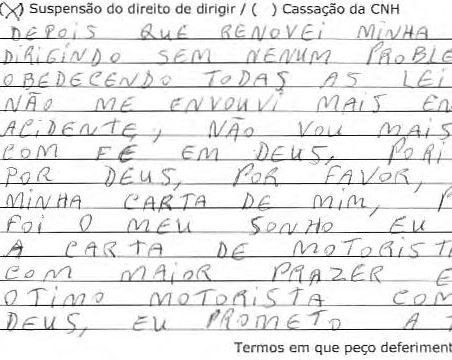 (X) Suspensão do direito de dirigir / ( ) Cassação da CNH
DEPOIS QUE RENOVEI MINHA
DIRIGINDO SEM NENUM PROBLE
OBEDECENDO TODAS AS LEI
NÃO ME ENVOUVI MAIS EN
ACIDENTE, NÃO VOU MAIS
COM FÉ EM DEUS, PORI
POR DEUS, POR FAVOR,
MINHA CARTA DE MIM, P
FOI O MEU SONHO EU
A CARTA DE MOTORISTI
COM MAIOR PRAZER E
OTIMO MOTORISTA COM
DEUS, EU PROMETO A
Termos em que peço deferiment